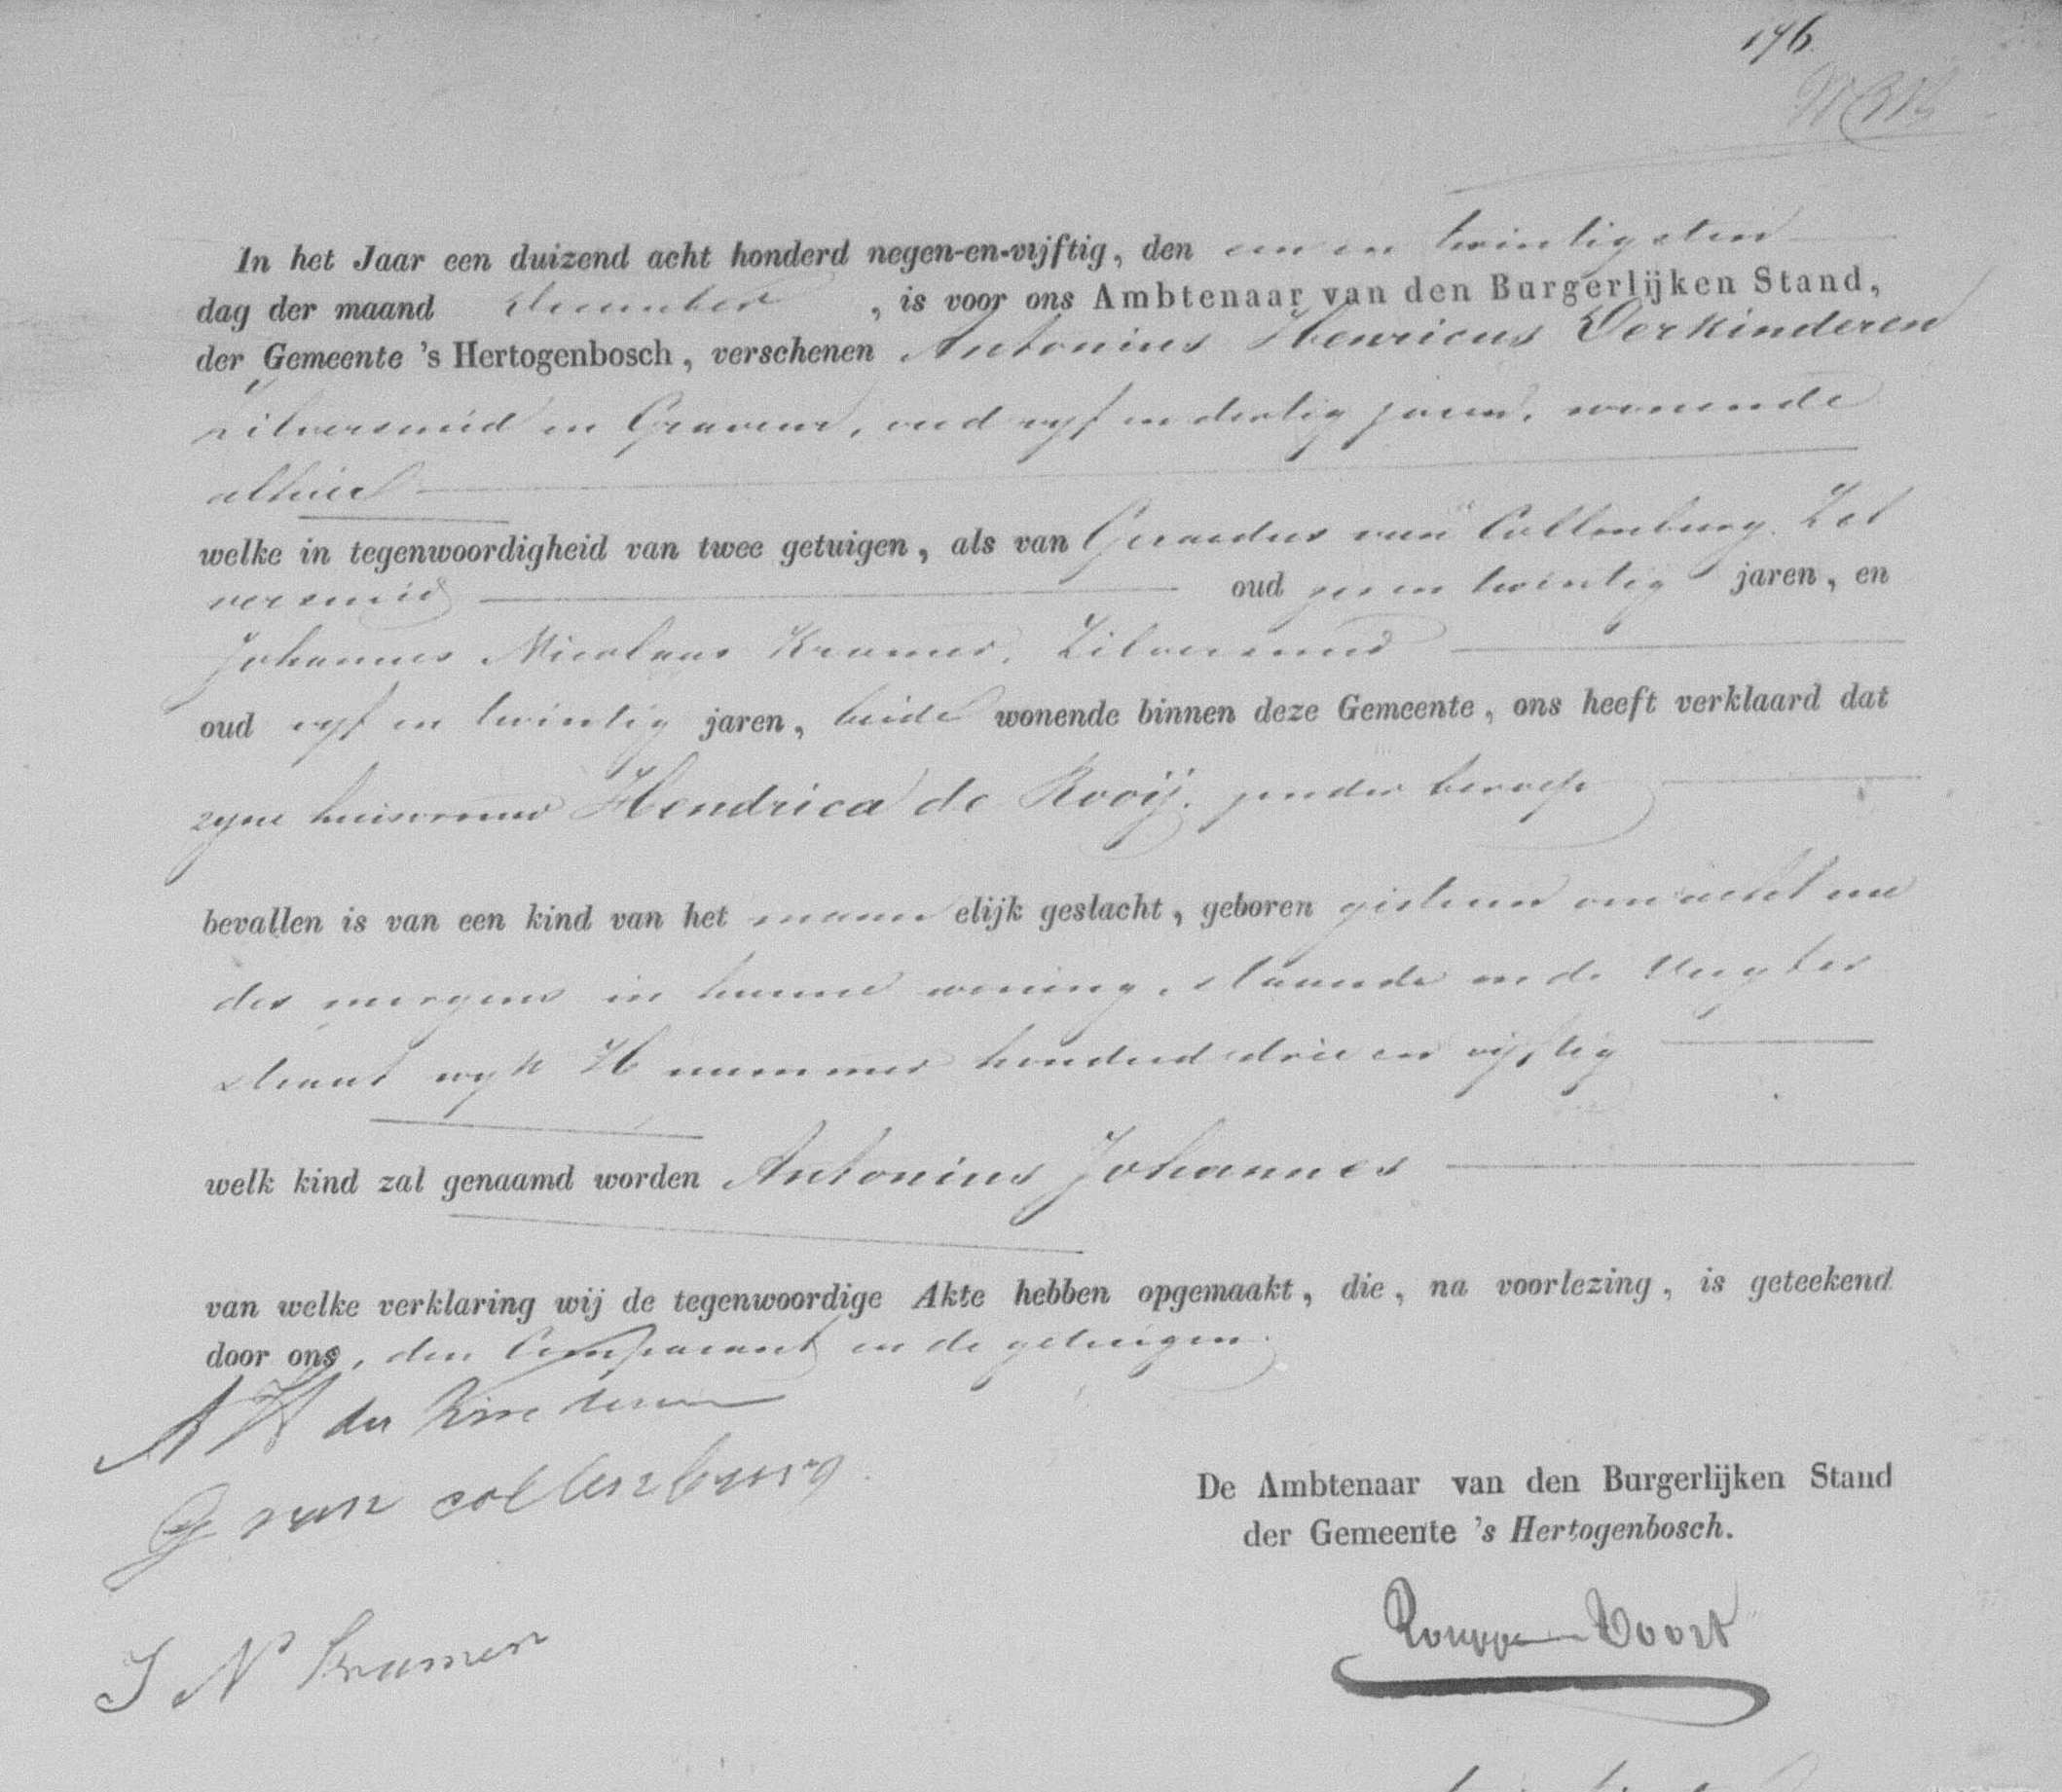 176
In het Jaar een duizend acht honderd negen-en-vijftig, den een en twintigsten
dag der maand december , is voor ons Ambtenaar van den Burgerlijken Stand,
der Gemeente 's Hertogenbosch, verschenen Antonius Henricus Derkinderen
zilversmid en Graveur, oud vyf en dertig jaren, wonende
alhier
welke in tegenwoordigheid van twee getuigen, als van Gerardus van Collenburg. Zil
versmid oud zes en twintig jaren, en
Johannes Nicolaas Kramer, Zilversmid
oud vyf en twintig jaren, beide wonende binnen deze Gemeente, ons heeft verklaard dat
zyne huisvrouw Hendrica de Rooij. zonder beroep
bevallen is van een kind van het mann elijk geslacht, geboren gisteren om acht ure
des morgens in hunne woning, staande in de Vugter
straat wyk H nummer honderd drie en vijftig
welk kind zal genaamd worden Antonius Johannes
van welke verklaring wij de tegenwoordige Akte hebben opgemaakt, die, na voorlezing, is geteekend
door ons, den Comparant en de getuigen.
A H der Kinderen
G van collenburg
J N Kramer
De Ambtenaar van den Burgerlijken Stand
der Gemeente 's Hertogenbosch.